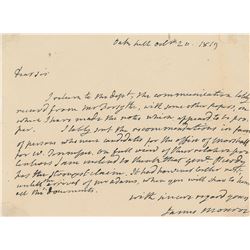 Oak hill Octr 20. 1819
Dear Sir
I return to the Dept, the communication lately
recevd from Mr Forsyth, with some other papers, on
which I have made the notes which appeard to be pro-
per. I lately sent the recommendations in favor
of persons who were candidates for the office of Marshall
for W. Tennessee, on full view of their relative pre-
tentions I am inclined to think that
has the strongest claim. It had however better rest
untill the arrival of Mr Adams, when you will shew to him
all the documents.
with sincere regard yours
James Monroe